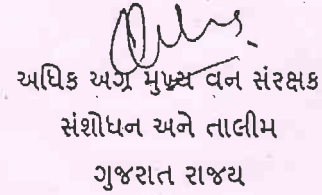 અધિક અગ્ર મુખ્ય વન સંરક્ષક
સંશોધન અને તાલીમ
ગુજરાત રાજય